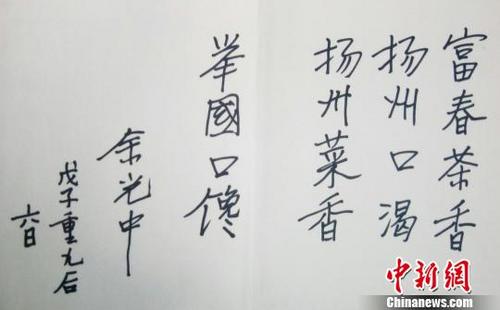 富春茶香
扬州口渴
扬州菜香
举國口馋
余光中
戊子重九后
六日
中新網
Chinanews.com